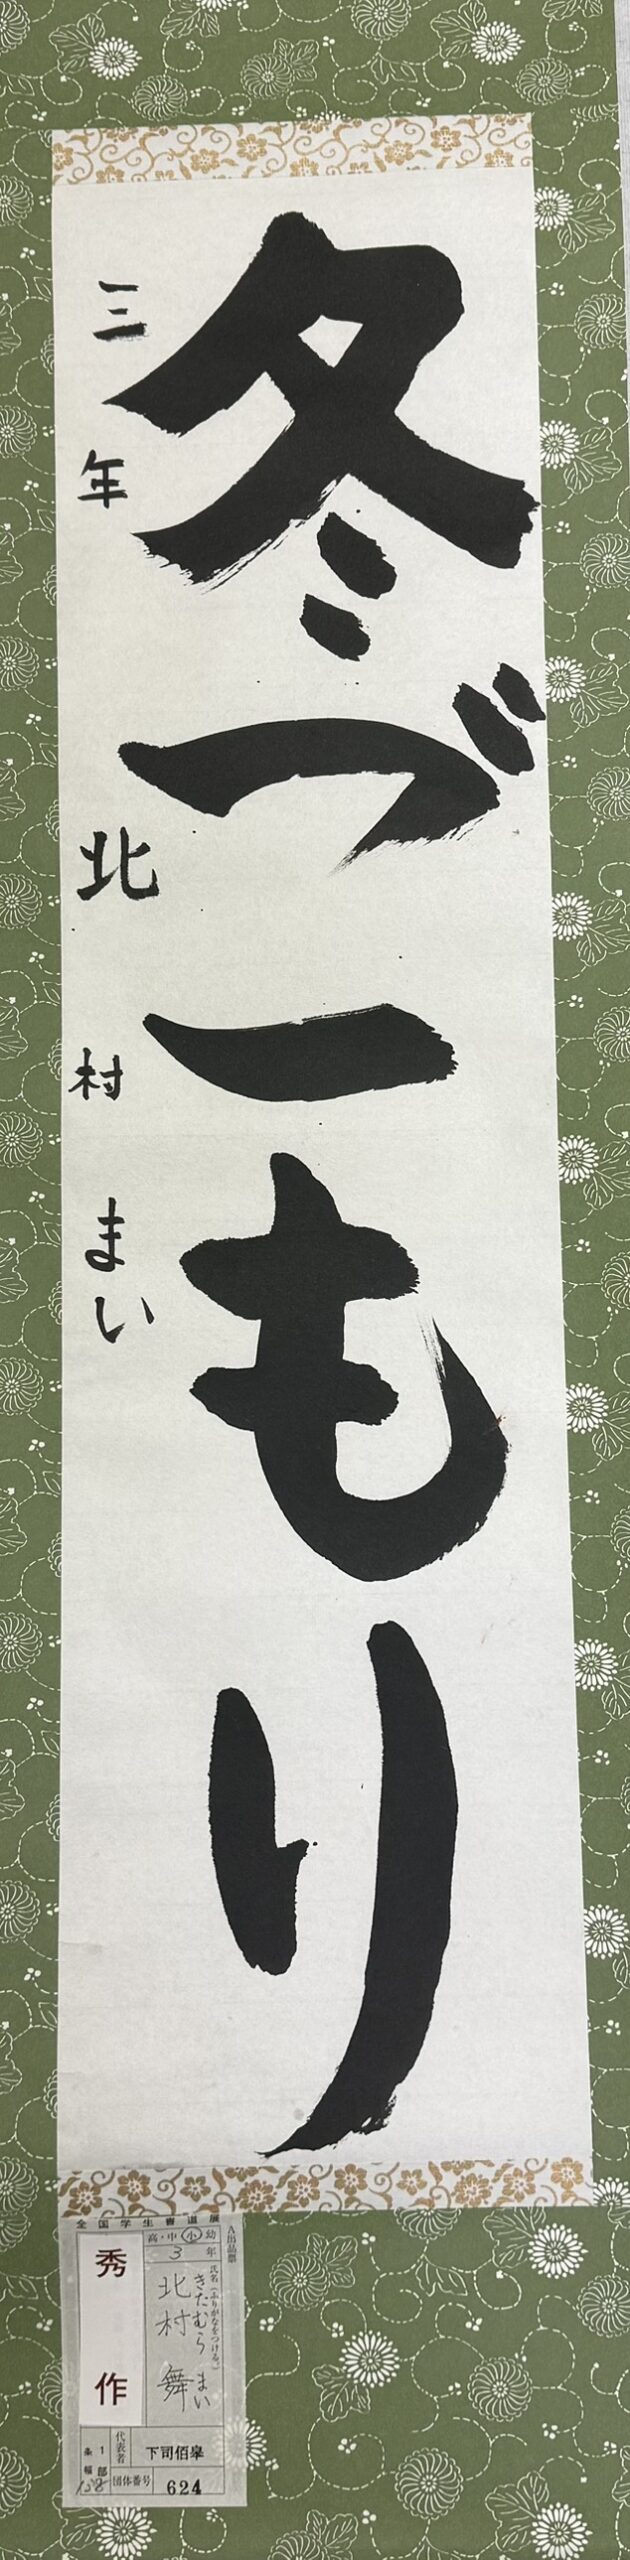 冬ごもり
三年 北村 まい
全国学生書道展
A出品票
高・中・小・幼
3年
氏名(ふりがなをつける。)
きたむら まい
北村 舞
秀作
代表者 下司佰皐
団体番号 624
1部
条幅